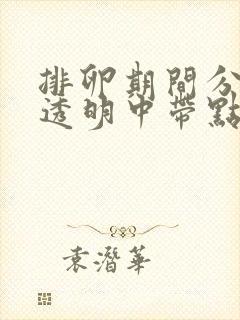 排卵期間分
透明中帶點
袁潛華